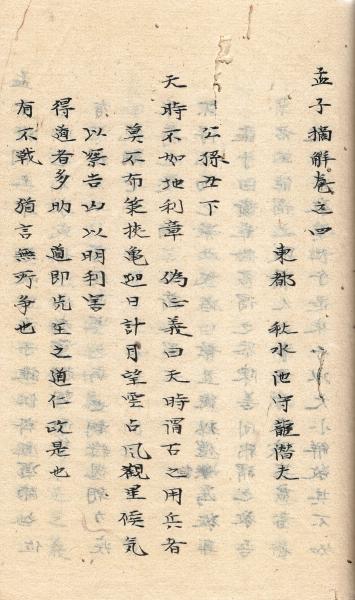 孟子摘解卷之四
東都 秋水池守龍潜夫
公孫丑下
天時不如地利章 偽正義曰天時謂古之用兵者
莫不布策挟亀迎日計月望雲占風觀星候気
以察吉凶以明利害
得道者多助 道即先王之道仁政是也
有不戰 猶言無所争也